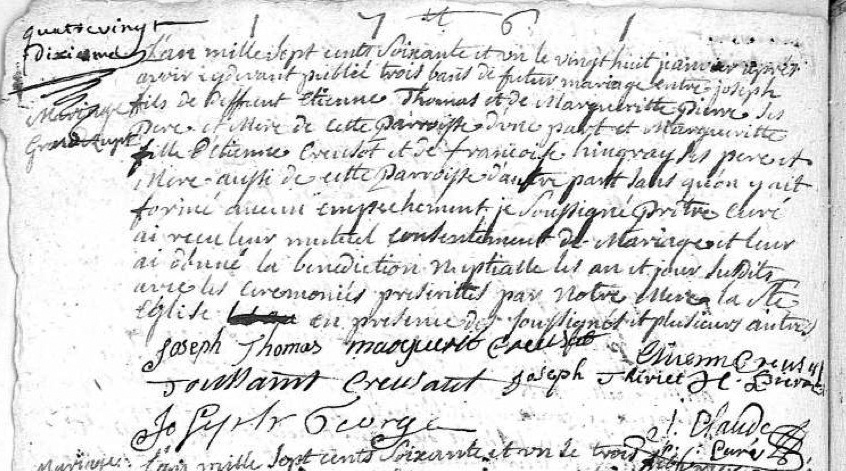 1761
quatrevingt
dixieme
L'an mille sept cents soixante et un le vingt huit janvier après
avoir cydevant publié trois bans de futur mariage entre joseph
fils de deffunt Etienne Thomas et de Margueritte pierre ses
Mariage
pere et Mere de cette parroisse d'une part et Margueritte
Grandrupt
fille d'Etienne Creusot et de francoise hingray ses pere et
Mere aussi de cette parroisse d'autre part sans qu'on y ait
formé aucun empechement je soussigné prêtre curé
ai recu leur mutuel consentement de Mariage et leur
ai donné la benediction nuptialle les an et jour susdits
avec les ceremonies prescrittes par Notre Mere la Ste
Eglise en presence des soussignés et plusieurs autres
Joseph Thomas marguerite Creusot Etienne Creusot
Toussaint Creusaut joseph Thiriet
Joseph George
j Claude
Curé
Mariage L'an mille sept cents soixante et un le trois